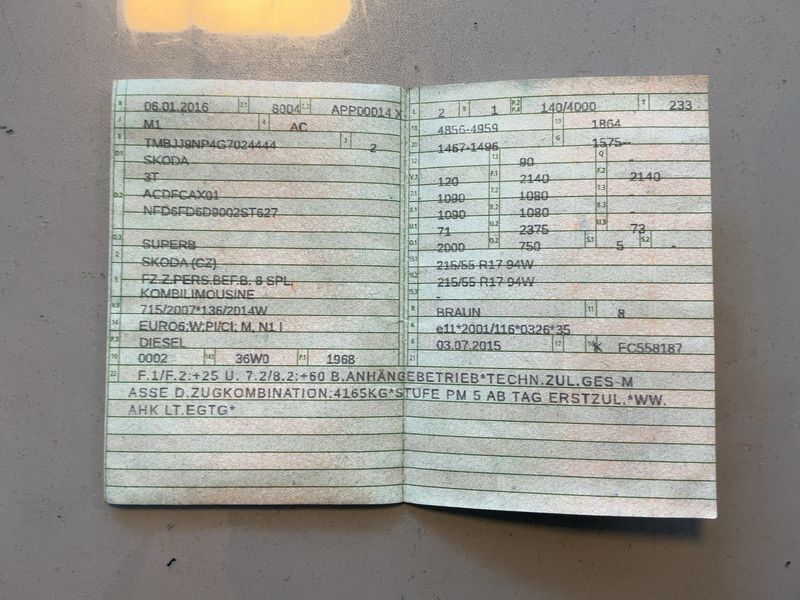 B 06.01.2016 2.1 8004 2.2 APP00014 X
J M1 4 AC
E TMBJJ9NP4G7024444 3 2
D.1 SKODA
3T
D.2 ACDFCAX01
NFD6FD6D9002ST627
D.3 SUPERB
2 SKODA (CZ)
5 FZ.Z.PERS.BEF.B. 8 SPL.
KOMBILIMOUSINE
V.9 715/2007*136/2014W
14 EURO6;W;PI/CI; M, N1 I
P.3 DIESEL
10 0002 14.1 36W0 P.1 1968
L 2 9 1 P.2 P.4 140/4000 T 233
18 4856-4959 19 1864
20 1467-1496 G 1575--
12 - 13 90 Q -
V.7 120 F.1 2140 F.2 2140
7.1 1090 7.2 1080 7.3 -
8.1 1090 8.2 1080 8.3 -
U.1 71 U.2 2375 U.3 73
O.1 2000 O.2 750 S.1 5 S.2 -
15.1 215/55 R17 94W
15.2 215/55 R17 94W
15.3 -
R BRAUN 11 8
K e11*2001/116*0326*35
6 03.07.2015 17 K 16 FC558187
21
22 F.1/F.2:+25 U. 7.2/8.2:+60 B.ANHÄNGEBETRIEB*TECHN.ZUL.GES-M
ASSE D.ZUGKOMBINATION:4165KG*STUFE PM 5 AB TAG ERSTZUL.*WW.
AHK LT.EGTG*